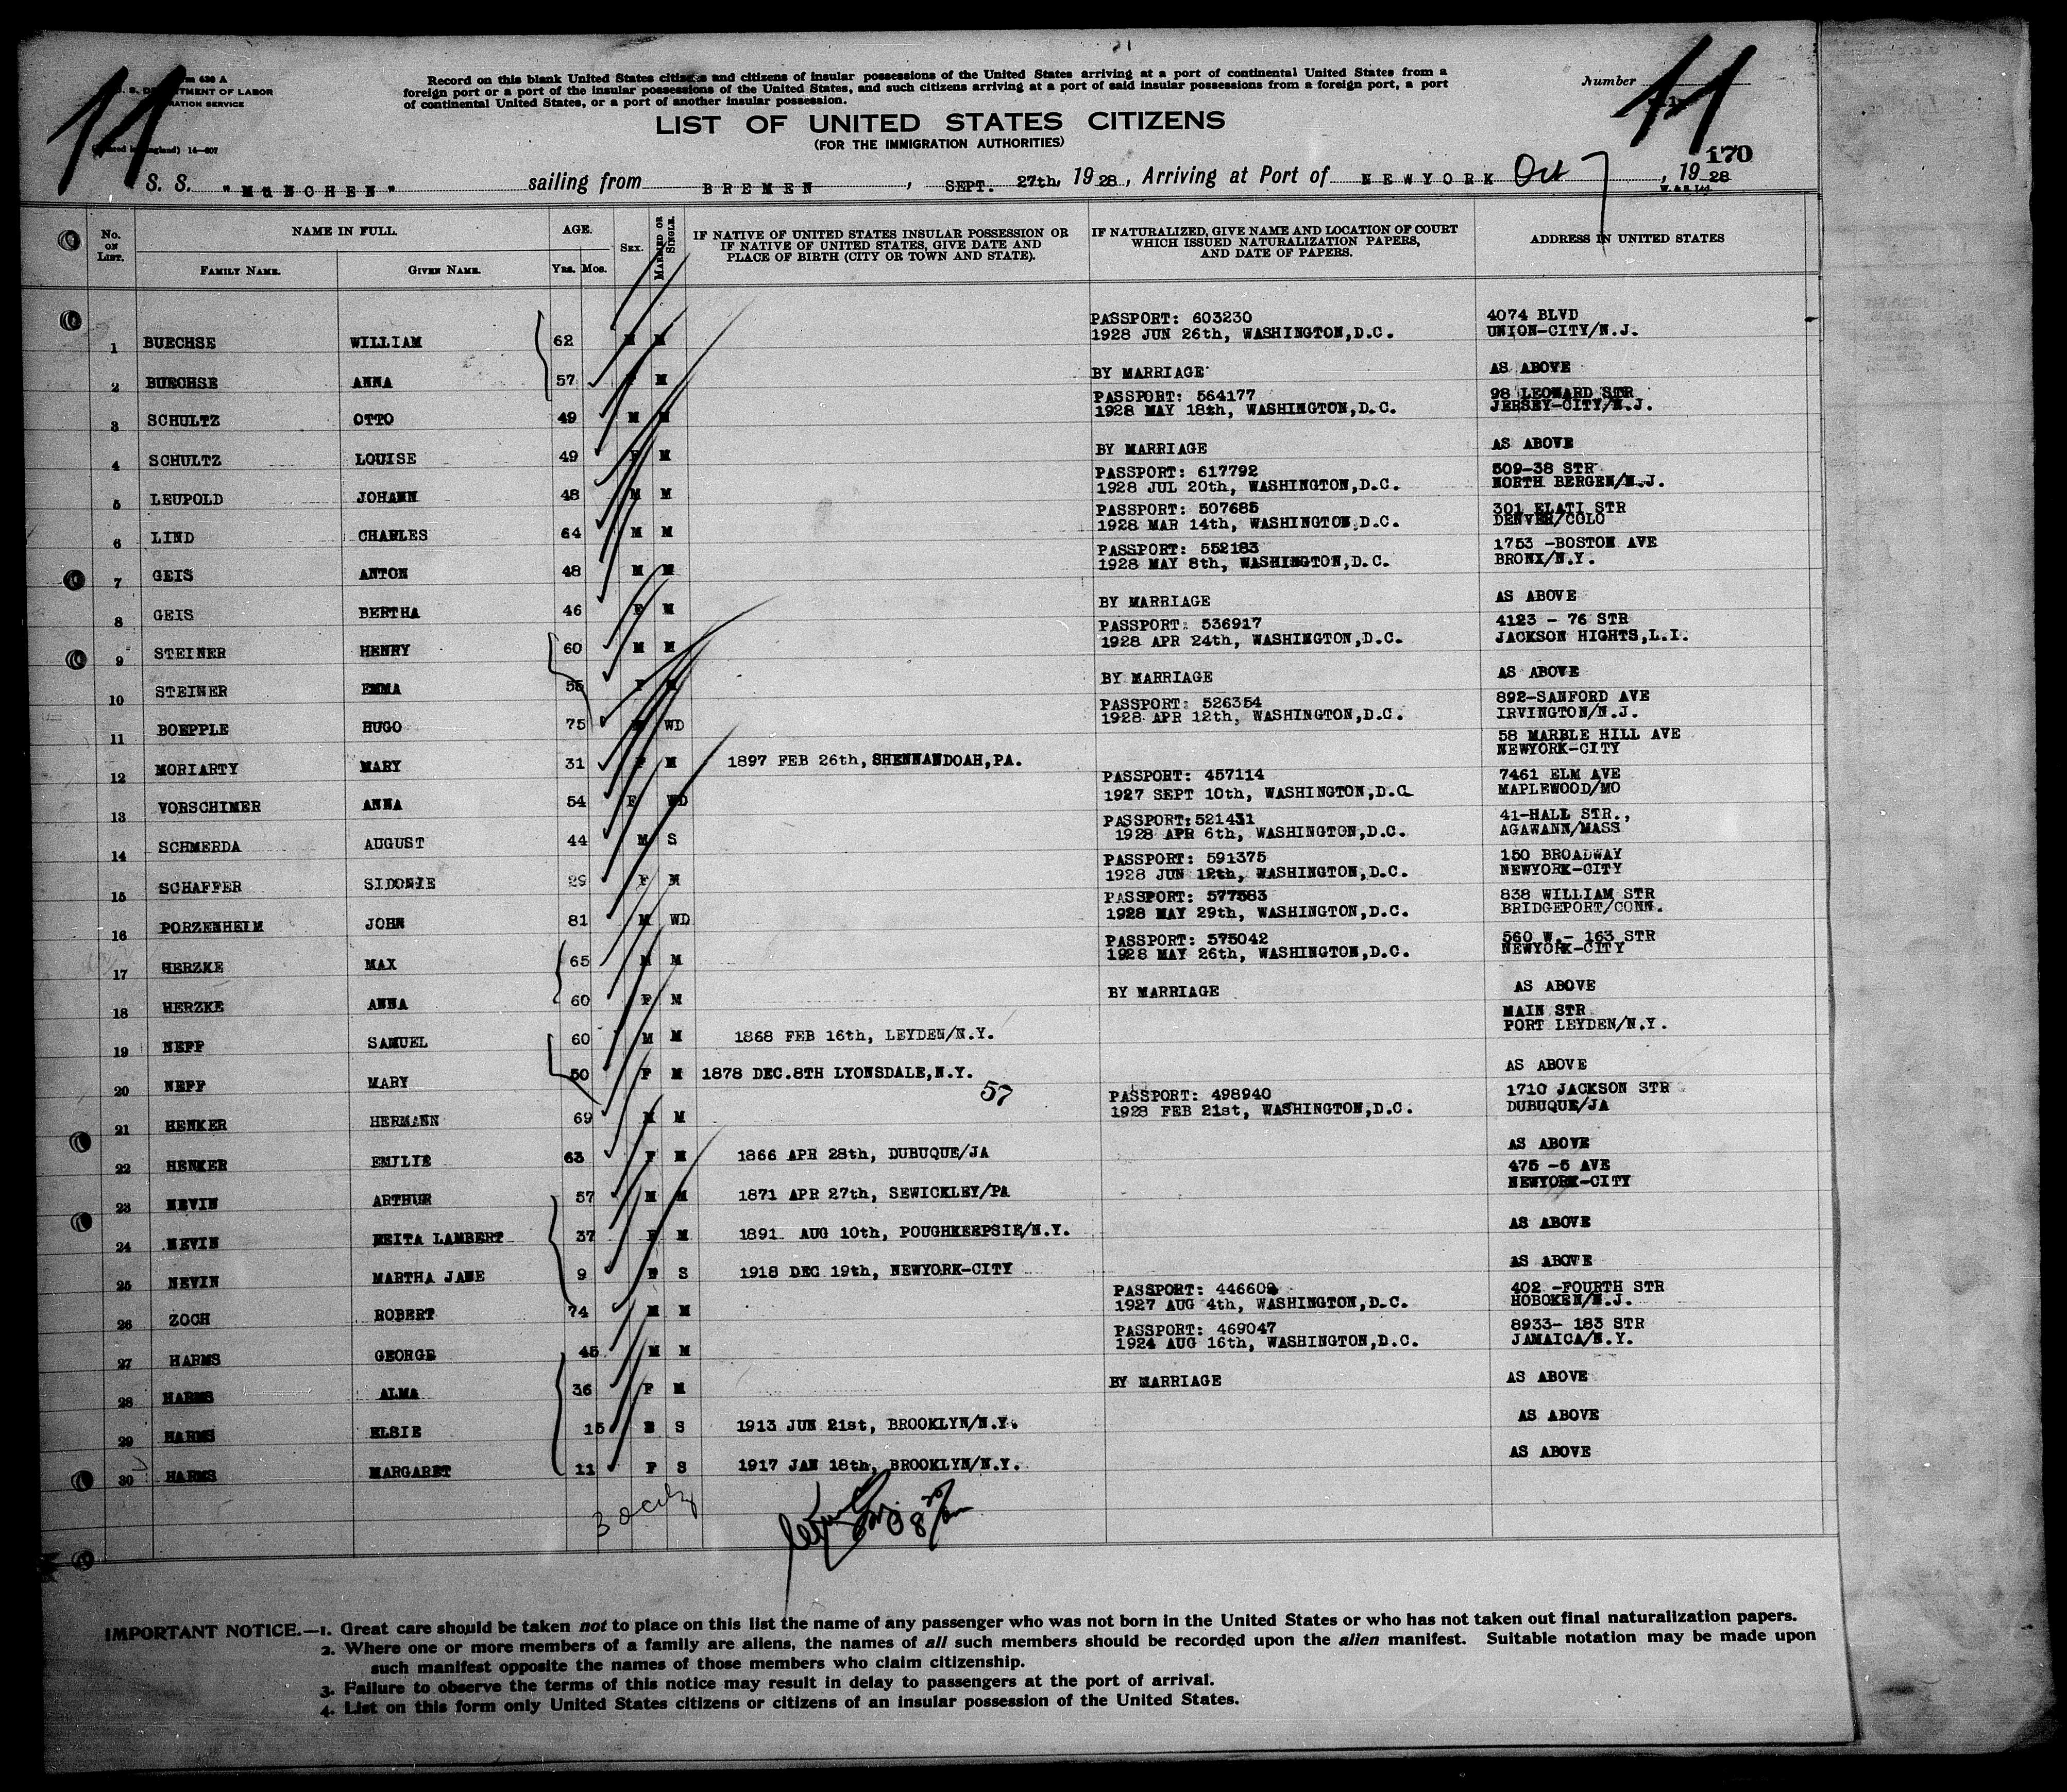 11
Form 630 A
U. S. DEPARTMENT OF LABOR
IMMIGRATION SERVICE
(Printed in England) 14—607
Record on this blank United States citizens and citizens of insular possessions of the United States arriving at a port of continental United States from a
foreign port or a port of the insular possessions of the United States, and such citizens arriving at a port of said insular possessions from a foreign port, a port
of continental United States, or a port of another insular possession.
Number
11
LIST OF UNITED STATES CITIZENS
(FOR THE IMMIGRATION AUTHORITIES)
170
S. S. "MüNCHEN" sailing from BREMEN, SEPT. 27th, 1928, Arriving at Port of NEWYORK Oct 7, 1928
W. & S. Ltd.
No. ON LIST. NAME IN FULL. AGE. SEX. MARRIED OR SINGLE. IF NATIVE OF UNITED STATES INSULAR POSSESSION OR IF NATIVE OF UNITED STATES, GIVE DATE AND PLACE OF BIRTH (CITY OR TOWN AND STATE). IF NATURALIZED, GIVE NAME AND LOCATION OF COURT WHICH ISSUED NATURALIZATION PAPERS, AND DATE OF PAPERS. ADDRESS IN UNITED STATES
FAMILY NAME. GIVEN NAME. Yrs. Mos.
PASSPORT: 603230 4074 BLVD
1 BUECHSE WILLIAM 62 M M 1928 JUN 26th, WASHINGTON,D.C. UNION-CITY/N.J.
2 BUECHSE ANNA 57 F M BY MARRIAGE AS ABOVE
PASSPORT: 564177 98 LEONARD STR
3 SCHULTZ OTTO 49 M M 1928 MAY 18th, WASHINGTON,D.C. JERSEY-CITY/N.J.
4 SCHULTZ LOUISE 49 F M BY MARRIAGE AS ABOVE
PASSPORT: 617792 509-38 STR
5 LEUPOLD JOHANN 48 M M 1928 JUL 20th, WASHINGTON,D.C. NORTH BERGEN/N.J.
PASSPORT: 507685 301 ELATI STR
6 LIND CHARLES 64 M M 1928 MAR 14th, WASHINGTON,D.C. DENVER/COLO
PASSPORT: 552183 1753 -BOSTON AVE
7 GEIS ANTON 48 M M 1928 MAY 8th, WASHINGTON,D.C. BRONX/N.Y.
8 GEIS BERTHA 46 F M BY MARRIAGE AS ABOVE
PASSPORT: 536917 4123 - 76 STR
9 STEINER HENRY 60 M M 1928 APR 24th, WASHINGTON,D.C. JACKSON HIGHTS,L.I.
10 STEINER EMMA 55 F M BY MARRIAGE AS ABOVE
PASSPORT: 526354 892-SANFORD AVE
11 BOEPPLE HUGO 75 M WD 1928 APR 12th, WASHINGTON,D.C. IRVINGTON/N.J.
58 MARBLE HILL AVE
12 MORIARTY MARY 31 F M 1897 FEB 26th, SHENNANDOAH,PA. NEWYORK-CITY
PASSPORT: 457114 7461 ELM AVE
13 VORSCHIMER ANNA 54 F WD 1927 SEPT 10th, WASHINGTON,D.C. MAPLEWOOD/MO
PASSPORT:521431 41-HALL STR.,
14 SCHMERDA AUGUST 44 M S 1928 APR 6th, WASHINGTON,D.C. AGAWANN/MASS
PASSPORT: 591375 150 BROADWAY
15 SCHAFFER SIDONIE 29 F M 1928 JUN 12th, WASHINGTON,D.C. NEWYORK-CITY
PASSPORT: 577583 838 WILLIAM STR
16 PORZENHEIM JOHN 81 M WD 1928 MAY 29th, WASHINGTON,D.C. BRIDGEPORT/CONN.
PASSPORT: 575042 560 W.- 163 STR
17 HERZKE MAX 65 M M 1928 MAY 26th, WASHINGTON,D.C. NEWYORK-CITY
18 HERZKE ANNA 60 F M BY MARRIAGE AS ABOVE
MAIN STR
19 NEFF SAMUEL 60 M M 1868 FEB 16th, LEYDEN/N.Y. PORT LEYDEN/N.Y.
20 NEFF MARY 50 F M 1878 DEC.8TH LYONSDALE,N.Y. AS ABOVE
57 PASSPORT: 498940 1710 JACKSON STR
21 HENKER HERMANN 69 M M 1928 FEB 21st, WASHINGTON,D.C. DUBUQUE/JA
22 HENKER EMILIE 63 F M 1866 APR 28th, DUBUQUE/JA AS ABOVE
475 -5 AVE
23 NEVIN ARTHUR 57 M M 1871 APR 27th, SEWICKLEY/PA NEWYORK-CITY
24 NEVIN REITA LAMBERT 37 F M 1891 AUG 10th, POUGHKEEPSIE/N.Y. AS ABOVE
25 NEVIN MARTHA JANE 9 S 1918 DEC 19th, NEWYORK-CITY AS ABOVE
PASSPORT: 446609 402 -FOURTH STR
26 ZOCH ROBERT 74 M M 1927 AUG 4th, WASHINGTON,D.C. HOBOKEN/N.J.
PASSPORT: 469047 8933- 183 STR
27 HARMS GEORGE 45 M M 1924 AUG 16th, WASHINGTON,D.C. JAMAICA/N.Y.
28 HARMS ALMA 36 F M BY MARRIAGE AS ABOVE
29 HARMS ELSIE 15 S 1913 JUN 21st, BROOKLYN/N.Y. AS ABOVE
30 HARMS MARGARET 11 F S 1917 JAN 18th, BROOKLYN/N.Y. AS ABOVE
IMPORTANT NOTICE.—1. Great care should be taken not to place on this list the name of any passenger who was not born in the United States or who has not taken out final naturalization papers.
2. Where one or more members of a family are aliens, the names of all such members should be recorded upon the alien manifest. Suitable notation may be made upon
such manifest opposite the names of those members who claim citizenship.
3. Failure to observe the terms of this notice may result in delay to passengers at the port of arrival.
4. List on this form only United States citizens or citizens of an insular possession of the United States.